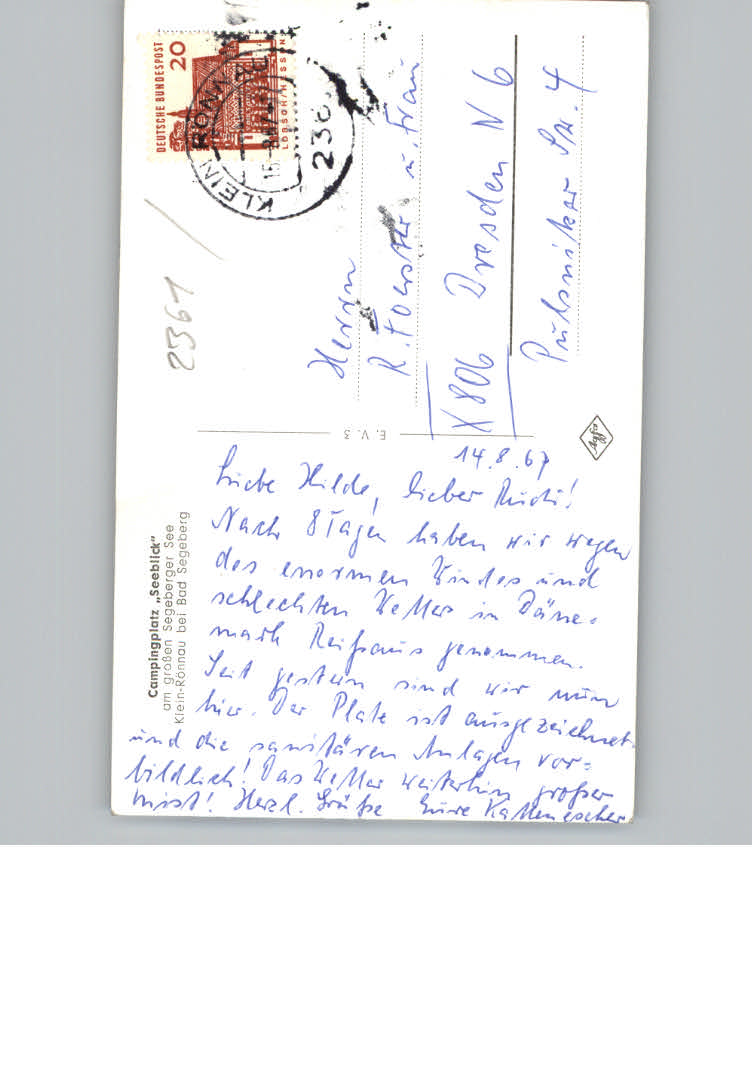 Campingplatz „Seeblick"
am großen Segeberger See
Klein-Rönnau bei Bad Segeberg
14.8.67
Liebe Hilde, lieber Rudi!
Nach 8 Tagen haben wir wegen
des enormen Windes und
schlechten Wetters in Däne-
mark Reißaus genommen.
Seit gestern sind wir nun
hier. Der Platz ist ausgezeichnet
und die sanitären Anlagen vor=
bildlich! Das Wetter weiterhin großer
Mist! Herzl. Grüße Eure Kattenescher
E. V. 3
Agfa
2361
DEUTSCHE BUNDESPOST
20
LORSCH/HESSEN
KLEIN RÖNNAU
236
Herrn
R. Foerster u. Frau
X 806 Dresden N 6
Pulsnitzer Str. 4